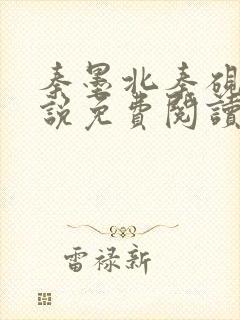 秦墨北秦硯
說免費閱讀
雷禄新